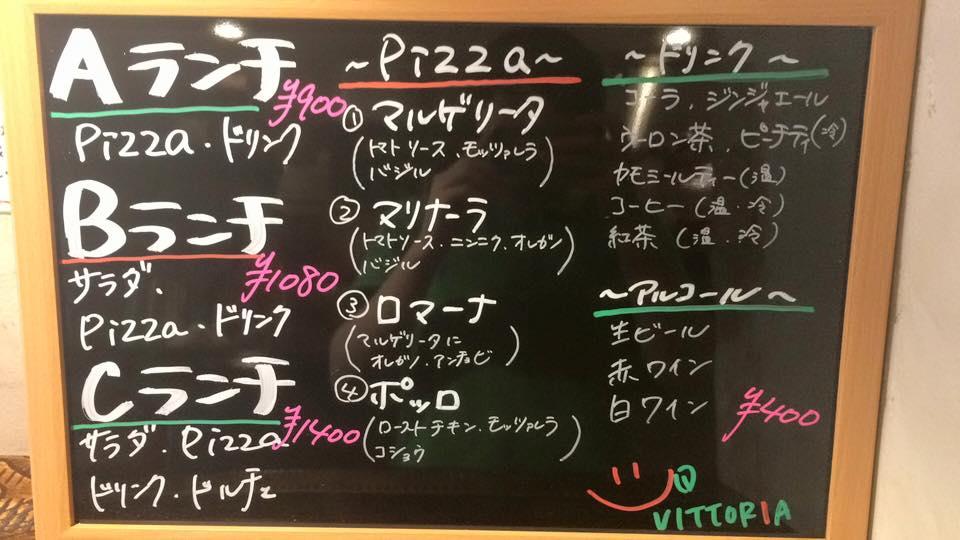 Aランチ
¥900
Pizza・ドリンク
Bランチ
¥1080
サラダ・
Pizza・ドリンク
Cランチ
¥1400
サラダ・Pizza
ドリンク・ドルチェ
~Pizza~
① マルゲリータ
(トマトソース、モッツァレラ
バジル)
② マリナーラ
(トマトソース・ニンニク、オレガノ
バジル)
③ ロマーナ
(マルゲリータに
オレガノ、アンチョビ)
④ ポッロ
(ローストチキン、モッツァレラ
コショウ)
~ドリンク~
コーラ、ジンジャエール
ウーロン茶、ピーチティ(冷)
カモミールティー(温)
コーヒー(温・冷)
紅茶(温・冷)
~アルコール~
生ビール
赤ワイン
白ワイン
¥400
VITTORIA